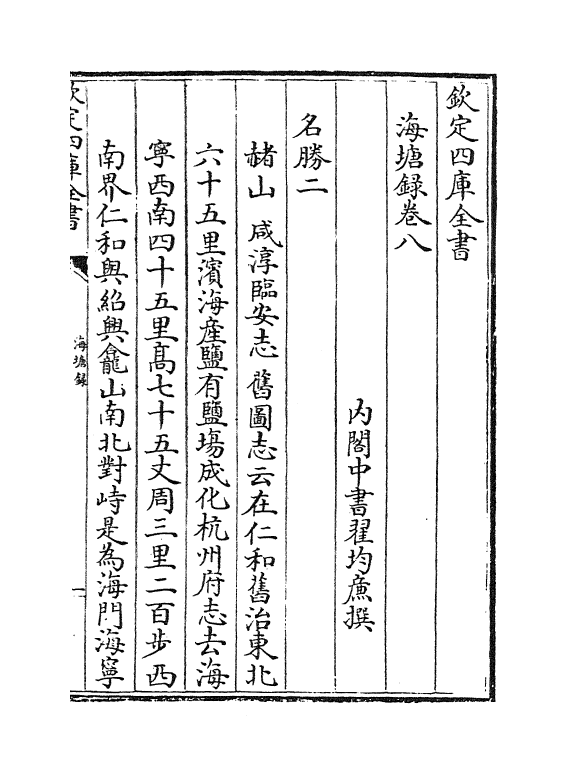 欽定四庫全書
海塘録巻八
内閣中書翟均廉撰
名勝二
赭山 咸淳臨安志 舊圖志云在仁和舊治東北
六十五里濱海産鹽有鹽塲成化杭州府志去海
寧西南四十五里髙七十五丈周三里二百步西
南界仁和與紹興龕山南北對峙是為海門海寧
欽定四庫全書
海塘録
一